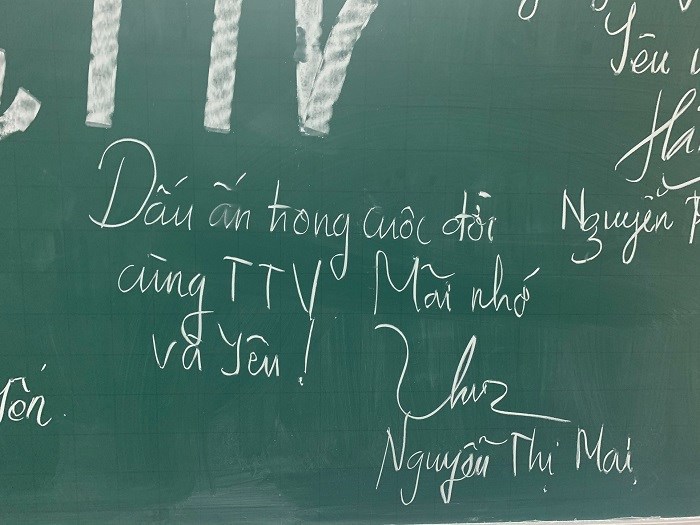 TTV
Yêu
Dấu ấn trong cuộc đời
Nguyễn
cùng TTV Mãi nhớ
và Yêu!
Nguyễn Thị Mai